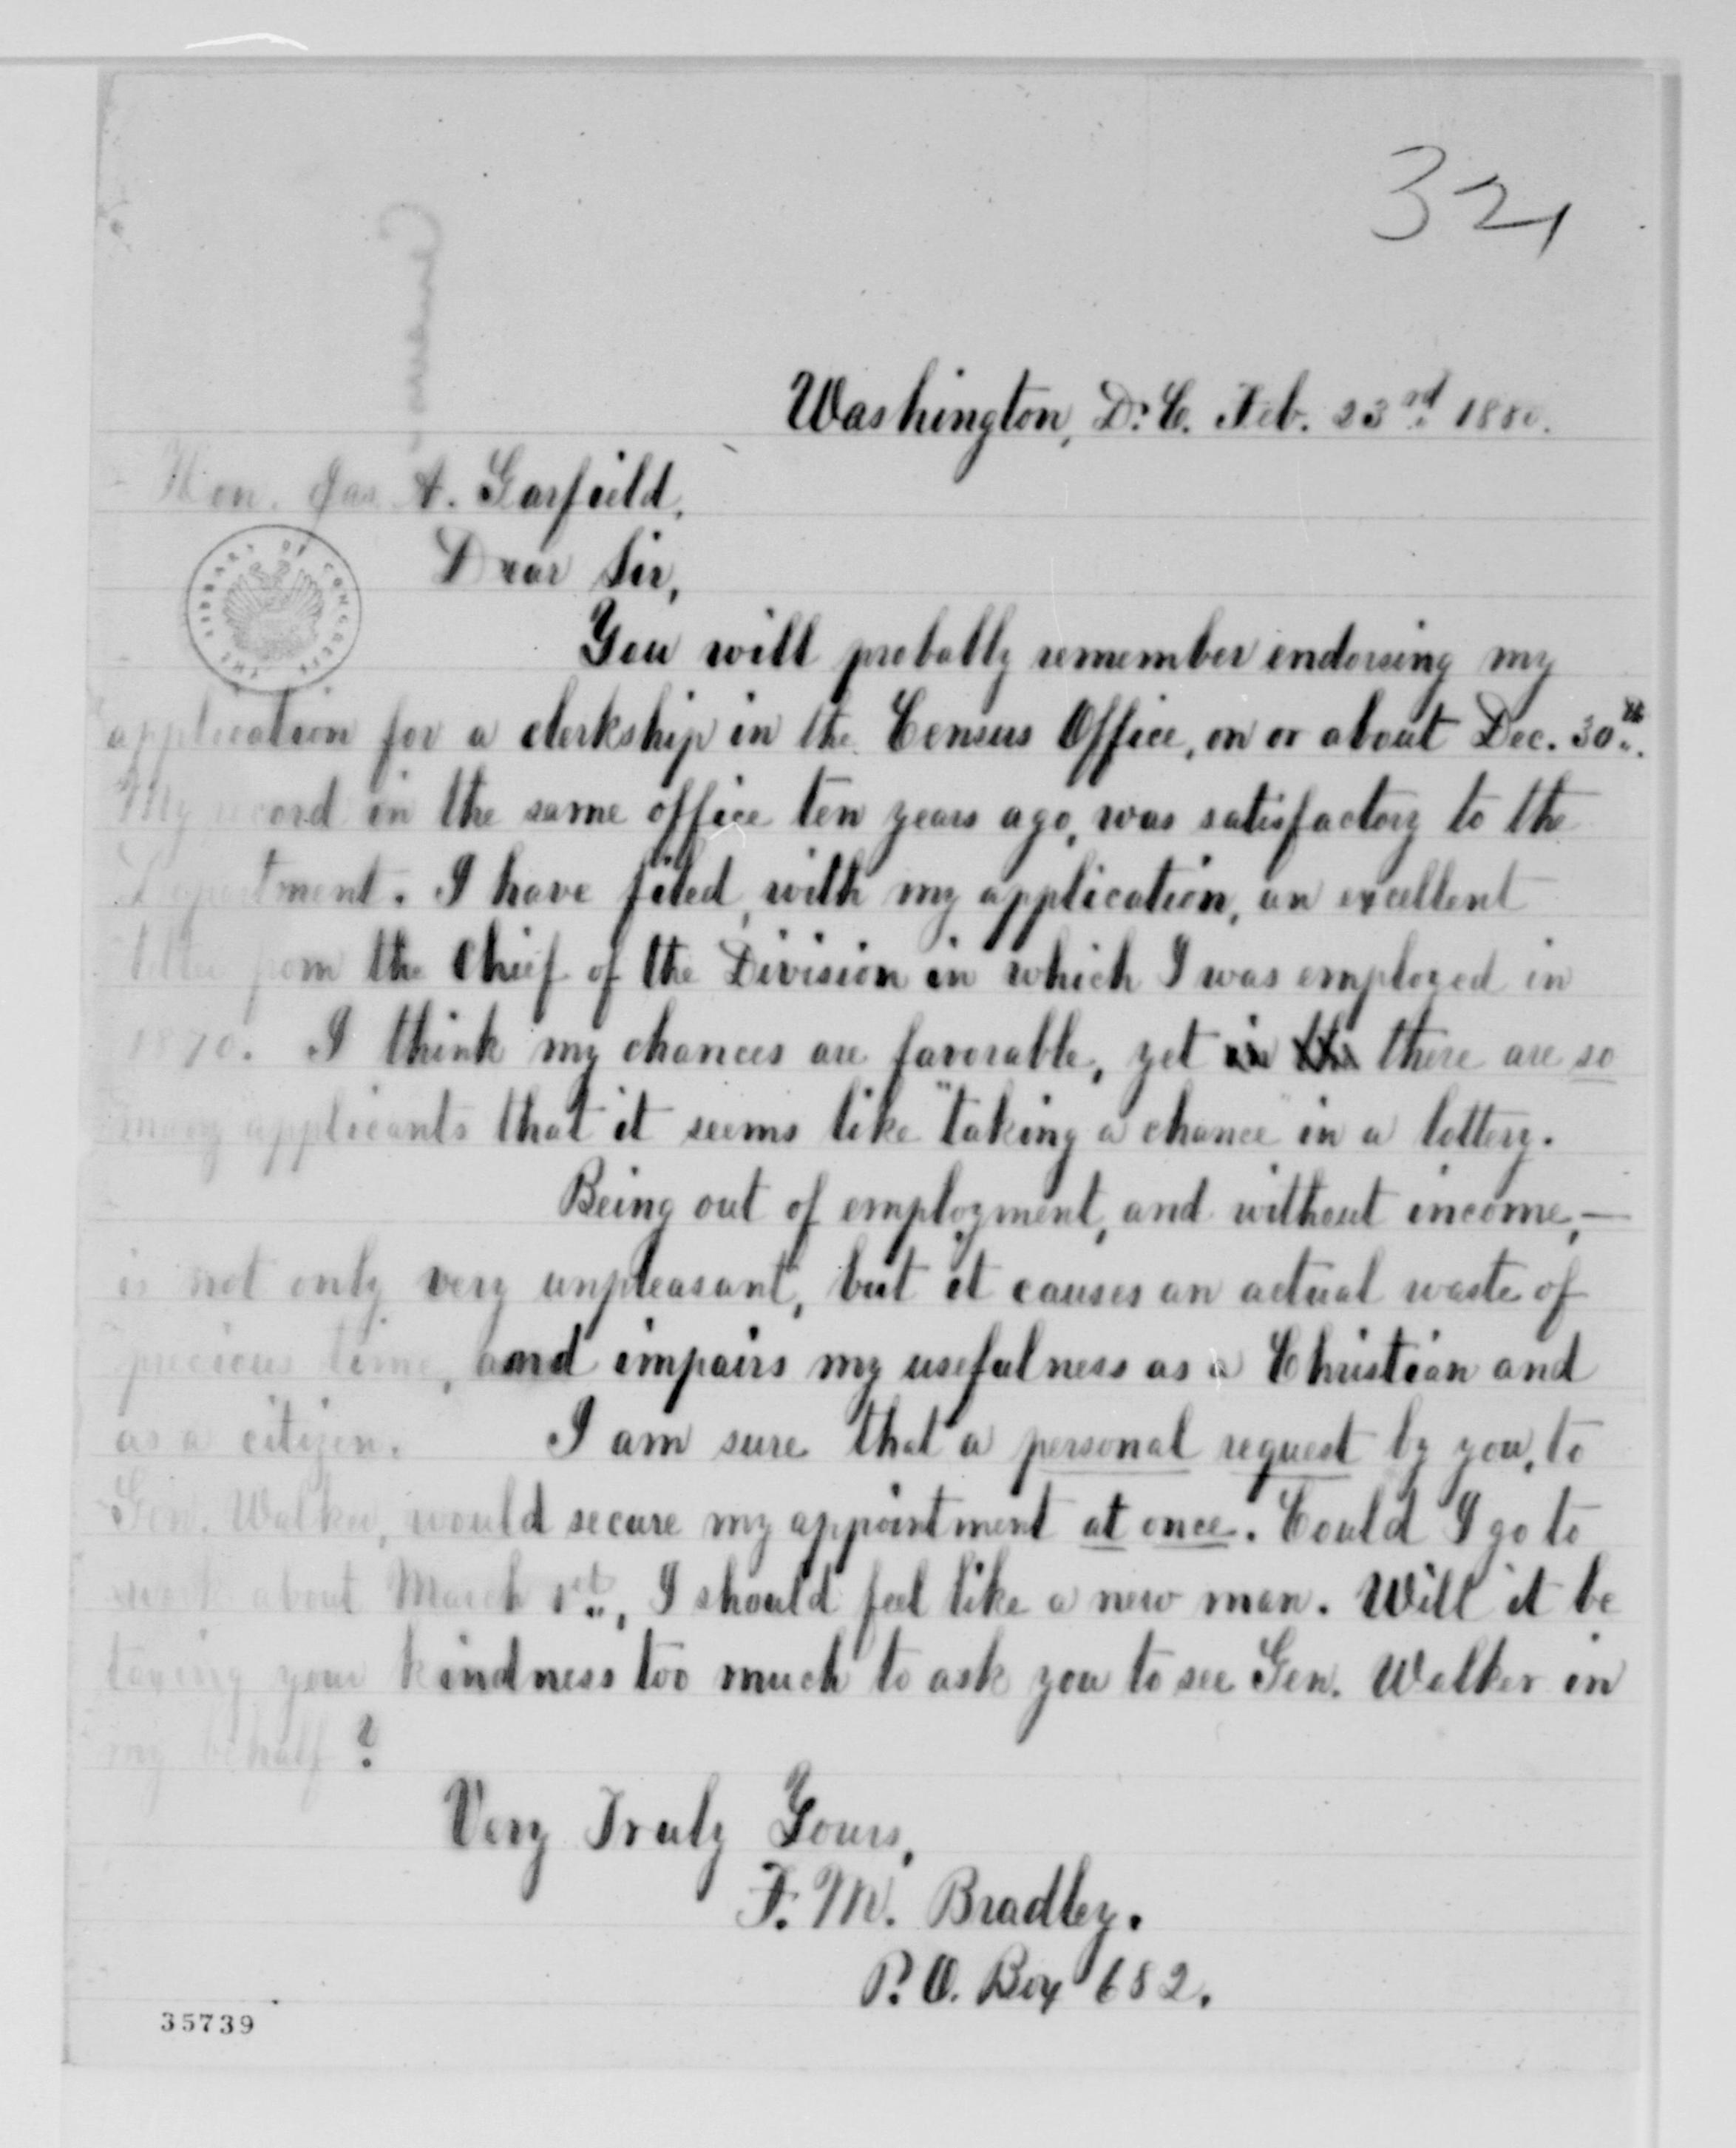 321
Washington, D.C. Feb. 23rd 1880.
Hon. Jas. A. Garfield,
THE LIBRARY OF CONGRESS
Dear Sir,
You will probably remember endorsing my
application for a clerkship in the Census Office, on or about Dec. 30th.
My record in the same office ten years ago, was satisfactory to the
Department. I have filed, with my application, an excellent
letter from the Chief of the Division in which I was employed in
1870. I think my chances are favorable, yet in the there are so
many applicants that it seems like "taking a chance" in a lottery.
Being out of employment, and without income,—
is not only very unpleasant, but it causes an actual waste of
precious time, and impairs my usefulness as a Christian and
as a citizen. I am sure that a personal request by you, to
Gen. Walker, would secure my appointment at once. Could I go to
work about March 1st, I should feel like a new man. Will it be
taxing your kindness too much to ask you to see Gen. Walker in
my behalf?
Very Truly Yours,
F. M. Bradley.
P. O. Box 682.
35739